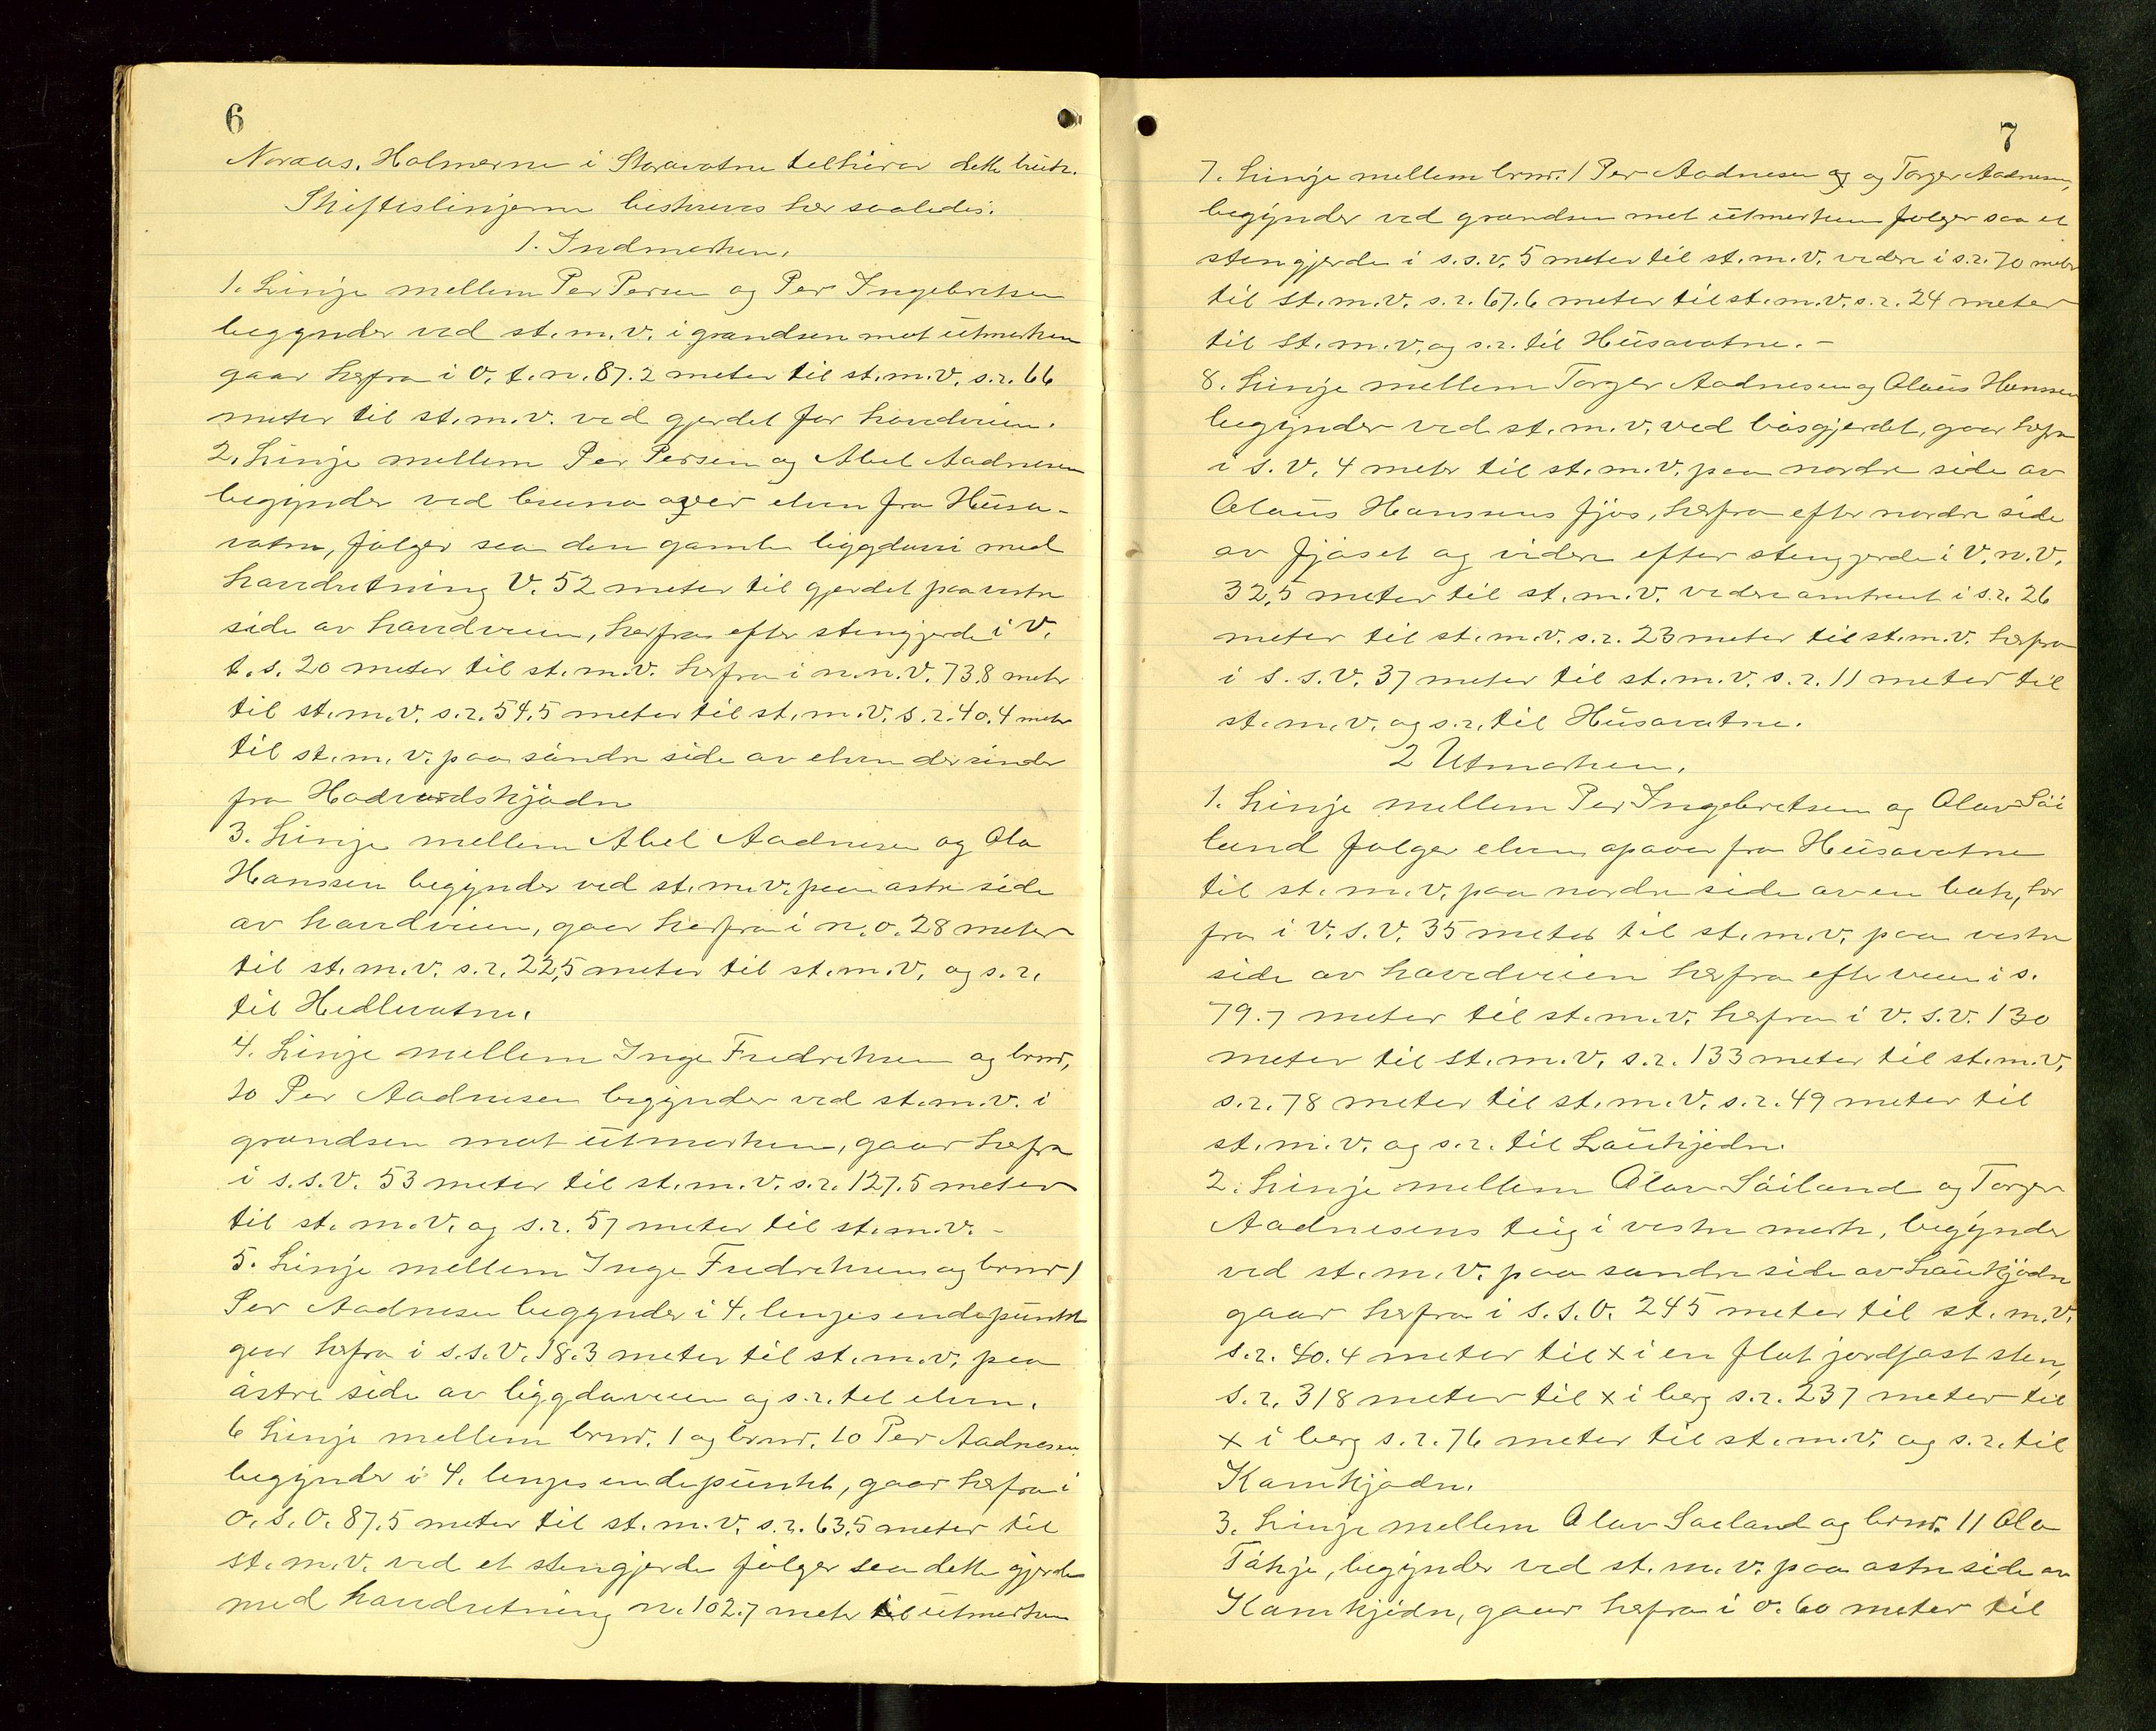 6
Noraas. Holmerne i Storavatne tilhører dette bruk.
Skifteslinjerne beskrives her saaledes:
1. Indmarken.
1. Linje mellem Per Persen og Per Ingebretsen
begynder ved st.m.v. i grandsen mot utmarken
gaar herfra i v.t.n. 87.2 meter til st.m.v. s.r. 66
meter til st.m.v. ved gjerdet for havdveien.
2. Linje mellem Per Persen og Abel Aadnesen
begynder ved bruna over elven fra Husa-
vatne, følger saa den gamle bygdavei med
havdretning V. 52 meter til gjerdet paa vestre
side av havdveien, herfra efter stengjerde i V.
t.s. 20 meter til st.m.v. herfra i n.n.v. 73.8 meter
til st.m.v. s.r. 54.5 meter til st.m.v. s.r. 40.4 meter
til st.m.v. paa søndre side av elven der rinder
fra Hodvardskjødn
3. Linje mellem Abel Aadnesen og Ola
Hanssen begynder ved st.m.v. paa østre side
av havdveien, gaar herfra i n.o. 28 meter
til st.m.v. s.r. 22,5 meter til st.m.v. og s.r.
til Hedlevatne.
4. Linje mellem Inge Fredriksen og brnr.
10 Per Aadnesen begynder ved st.m.v. i
grandsen mot utmarken, gaar herfra
i s.s.v. 53 meter til st.m.v. s.r. 127.5 meter
til st.m.v. og s.r. 57 meter til st.m.v. -
5. Linje mellem Inge Fredriksen og brnr 1
Per Aadnesen begynder i 4. linjes endepunkt
gaar herfra i s.s.v. 18.3 meter til st.m.v. paa
østre side av bygdaveien og s.r. til elven.
6 Linje mellem brnr. 1 og brnr. 10 Per Aadnesen
begynder i 4. linjes endepunkt, gaar herfra i
o.s.o. 87.5 meter til st.m.v. s.r. 63.5 meter til
st.m.v. ved et stengjerde følger saa dette gjerde
med havdretning n. 102.7 meter til utmarken
7
7. Linje mellem brnr. 1 Per Aadnesen og og Torger Aadnesen,
begynder ved grandsen mot utmarken følger saa et
stengjerde i s.s.v. 5 meter til st.m.v. videre i s.r. 70 meter
til st.m.v. s.r. 67.6 meter til st.m.v. s.r. 24 meter
til st.m.v. og s.r. til Husavatne. -
8. Linje mellem Torger Aadnesen og Olaus Hanssen
begynder ved st.m.v. ved bøsgjerdet, gaar herfra
i s.v. 4 meter til st.m.v. paa nordre side av
Olaus Hanssens fjøs, herfra efter nordre side
av fjøset og videre efter stengjerde i V.n.V.
32,5 meter til st.m.v. videre omtrent i s.r. 26
meter til st.m.v. s.r. 23 meter til st.m.v. herfra
i s.s.v. 37 meter til st.m.v. s.r. 11 meter til
st.m.v. og s.r. til Husavatne.
2 Utmarken.
1. Linje mellem Per Ingebretsen og Olav Søi
land følger elven opover fra Husavatne
til st.m.v. paa nordre side av en bæk, her
fra i V.s.V. 35 meter til st.m.v. paa vestre
side av havedveien herfra efter veien i s.
79.7 meter til st.m.v. herfra i v.s.v. 130
meter til st.m.v. s.r. 133 meter til st.m.v.
s.r. 78 meter til st.m.v. s.r. 49 meter til
st.m.v. og s.r. til Laukjødn.
2. Linje mellem Olav Søiland og Torger
Aadnesens teig i vestre mark, begynder
ved st.m.v. paa søndre side av Laukjødn
gaar herfra i s.s.o. 245 meter til st.m.v.
s.r. 40.4 meter til x i en flat jordfast sten,
s.r. 318 meter til x i berg s.r. 237 meter til
x i berg s.r. 76 meter til st.m.v. og s.r. til
Kamkjødn.
3. Linje mellem Olav Søeland og brnr. 11 Ola
Tøkje, begynder ved st.m.v. paa østre side av
Kamkjødn, gaar herfra i o. 60 meter til